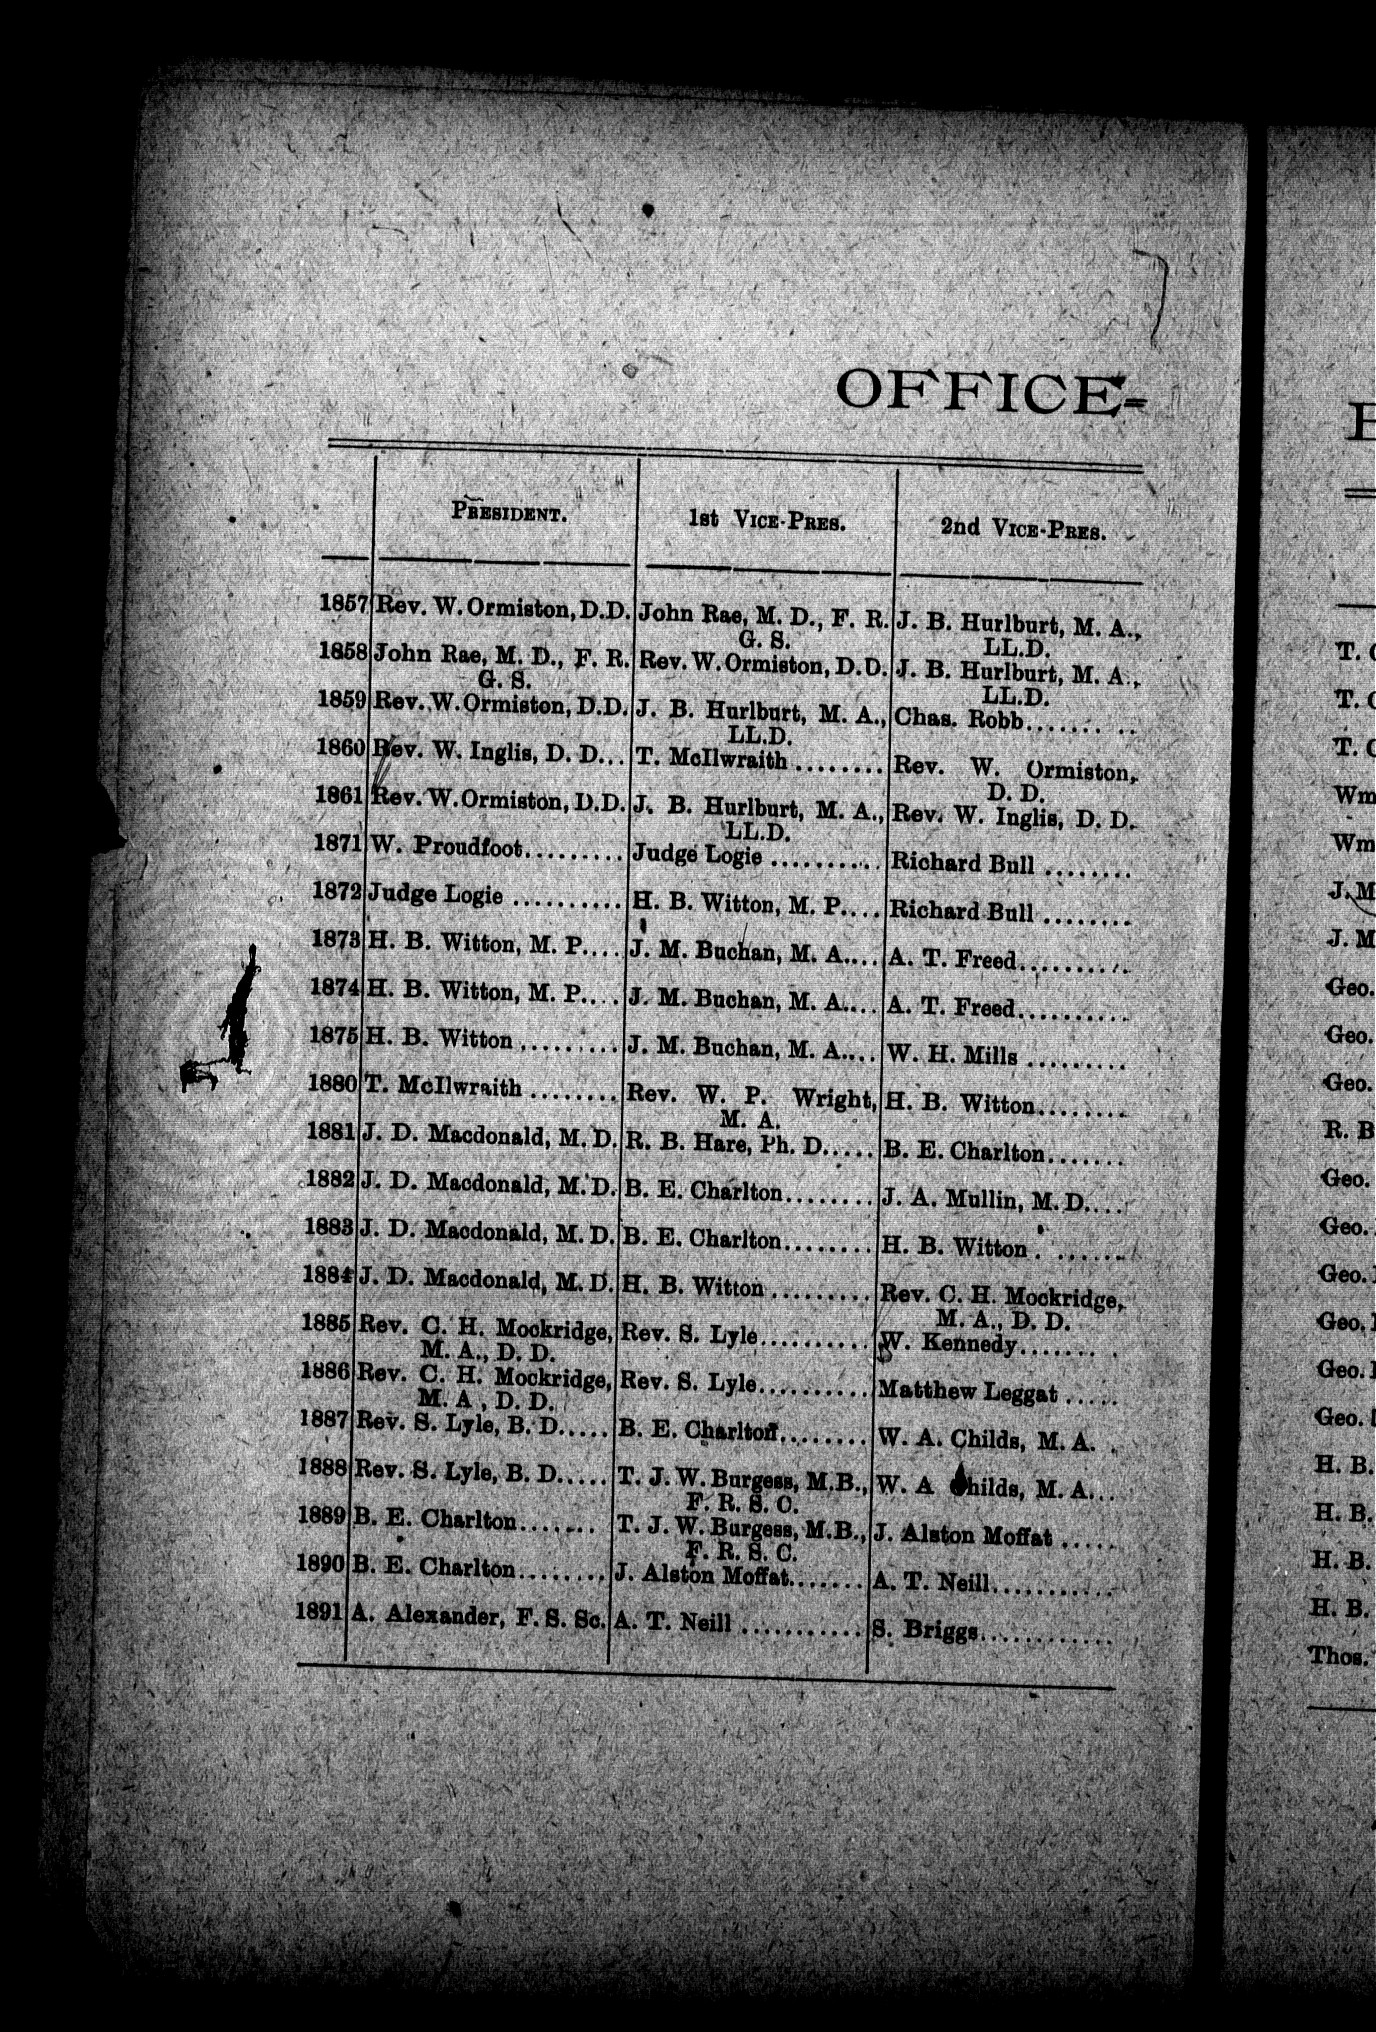 OFFICE-
PRESIDENT. 1st VICE-PRES. 2nd VICE-PRES.
1857 Rev. W. Ormiston, D.D. John Rae, M. D., F. R. J. B. Hurlburt, M. A.,
G. S. LL.D.
1858 John Rae, M. D., F. R. Rev. W. Ormiston, D.D. J. B. Hurlburt, M. A.,
G. S. LL.D.
1859 Rev. W. Ormiston, D.D. J. B. Hurlburt, M. A., Chas. Robb
LL.D.
1860 Rev. W. Inglis, D. D... T. McIlwraith ........ Rev. W. Ormiston,
D. D.
1861 Rev. W. Ormiston, D.D. J. B. Hurlburt, M. A., Rev. W. Inglis, D. D.
LL.D.
1871 W. Proudfoot......... Judge Logie .......... Richard Bull ........
1872 Judge Logie .......... H. B. Witton, M. P.... Richard Bull ........
1873 H. B. Witton, M. P.... J. M. Buchan, M. A.... A. T. Freed..........
1874 H. B. Witton, M. P.... J. M. Buchan, M. A.... A. T. Freed..........
1875 H. B. Witton ......... J. M. Buchan, M. A.... W. H. Mills .........
1880 T. McIlwraith ........ Rev. W. P. Wright, H. B. Witton........
M. A.
1881 J. D. Macdonald, M. D. R. B. Hare, Ph. D..... B. E. Charlton.......
1882 J. D. Macdonald, M. D. B. E. Charlton........ J. A. Mullin, M. D....
1883 J. D. Macdonald, M. D. B. E. Charlton........ H. B. Witton . .......
1884 J. D. Macdonald, M. D. H. B. Witton ......... Rev. C. H. Mockridge,
M. A., D. D.
1885 Rev. C. H. Mockridge, Rev. S. Lyle.......... W. Kennedy....... .
M. A., D. D.
1886 Rev. C. H. Mockridge, Rev. S. Lyle.......... Matthew Leggat .....
M. A , D. D.
1887 Rev. S. Lyle, B. D..... B. E. Charlton........ W. A. Childs, M. A. .
1888 Rev. S. Lyle, B. D..... T. J. W. Burgess, M.B., W. A Childs, M. A...
F. R. S. C.
1889 B. E. Charlton....... T. J. W. Burgess, M.B., J. Alston Moffat .....
F. R. S. C.
1890 B. E. Charlton........ J. Alston Moffat....... A. T. Neill...........
1891 A. Alexander, F. S. Sc. A. T. Neill ........... S. Briggs............
T.
T.
T.
Wm
Wm
J. M
J. M
Geo.
Geo.
Geo.
R. B
Geo.
Geo.
Geo.
Geo.
Geo.
Geo.
H. B.
H. B.
H. B.
H. B.
Thos.